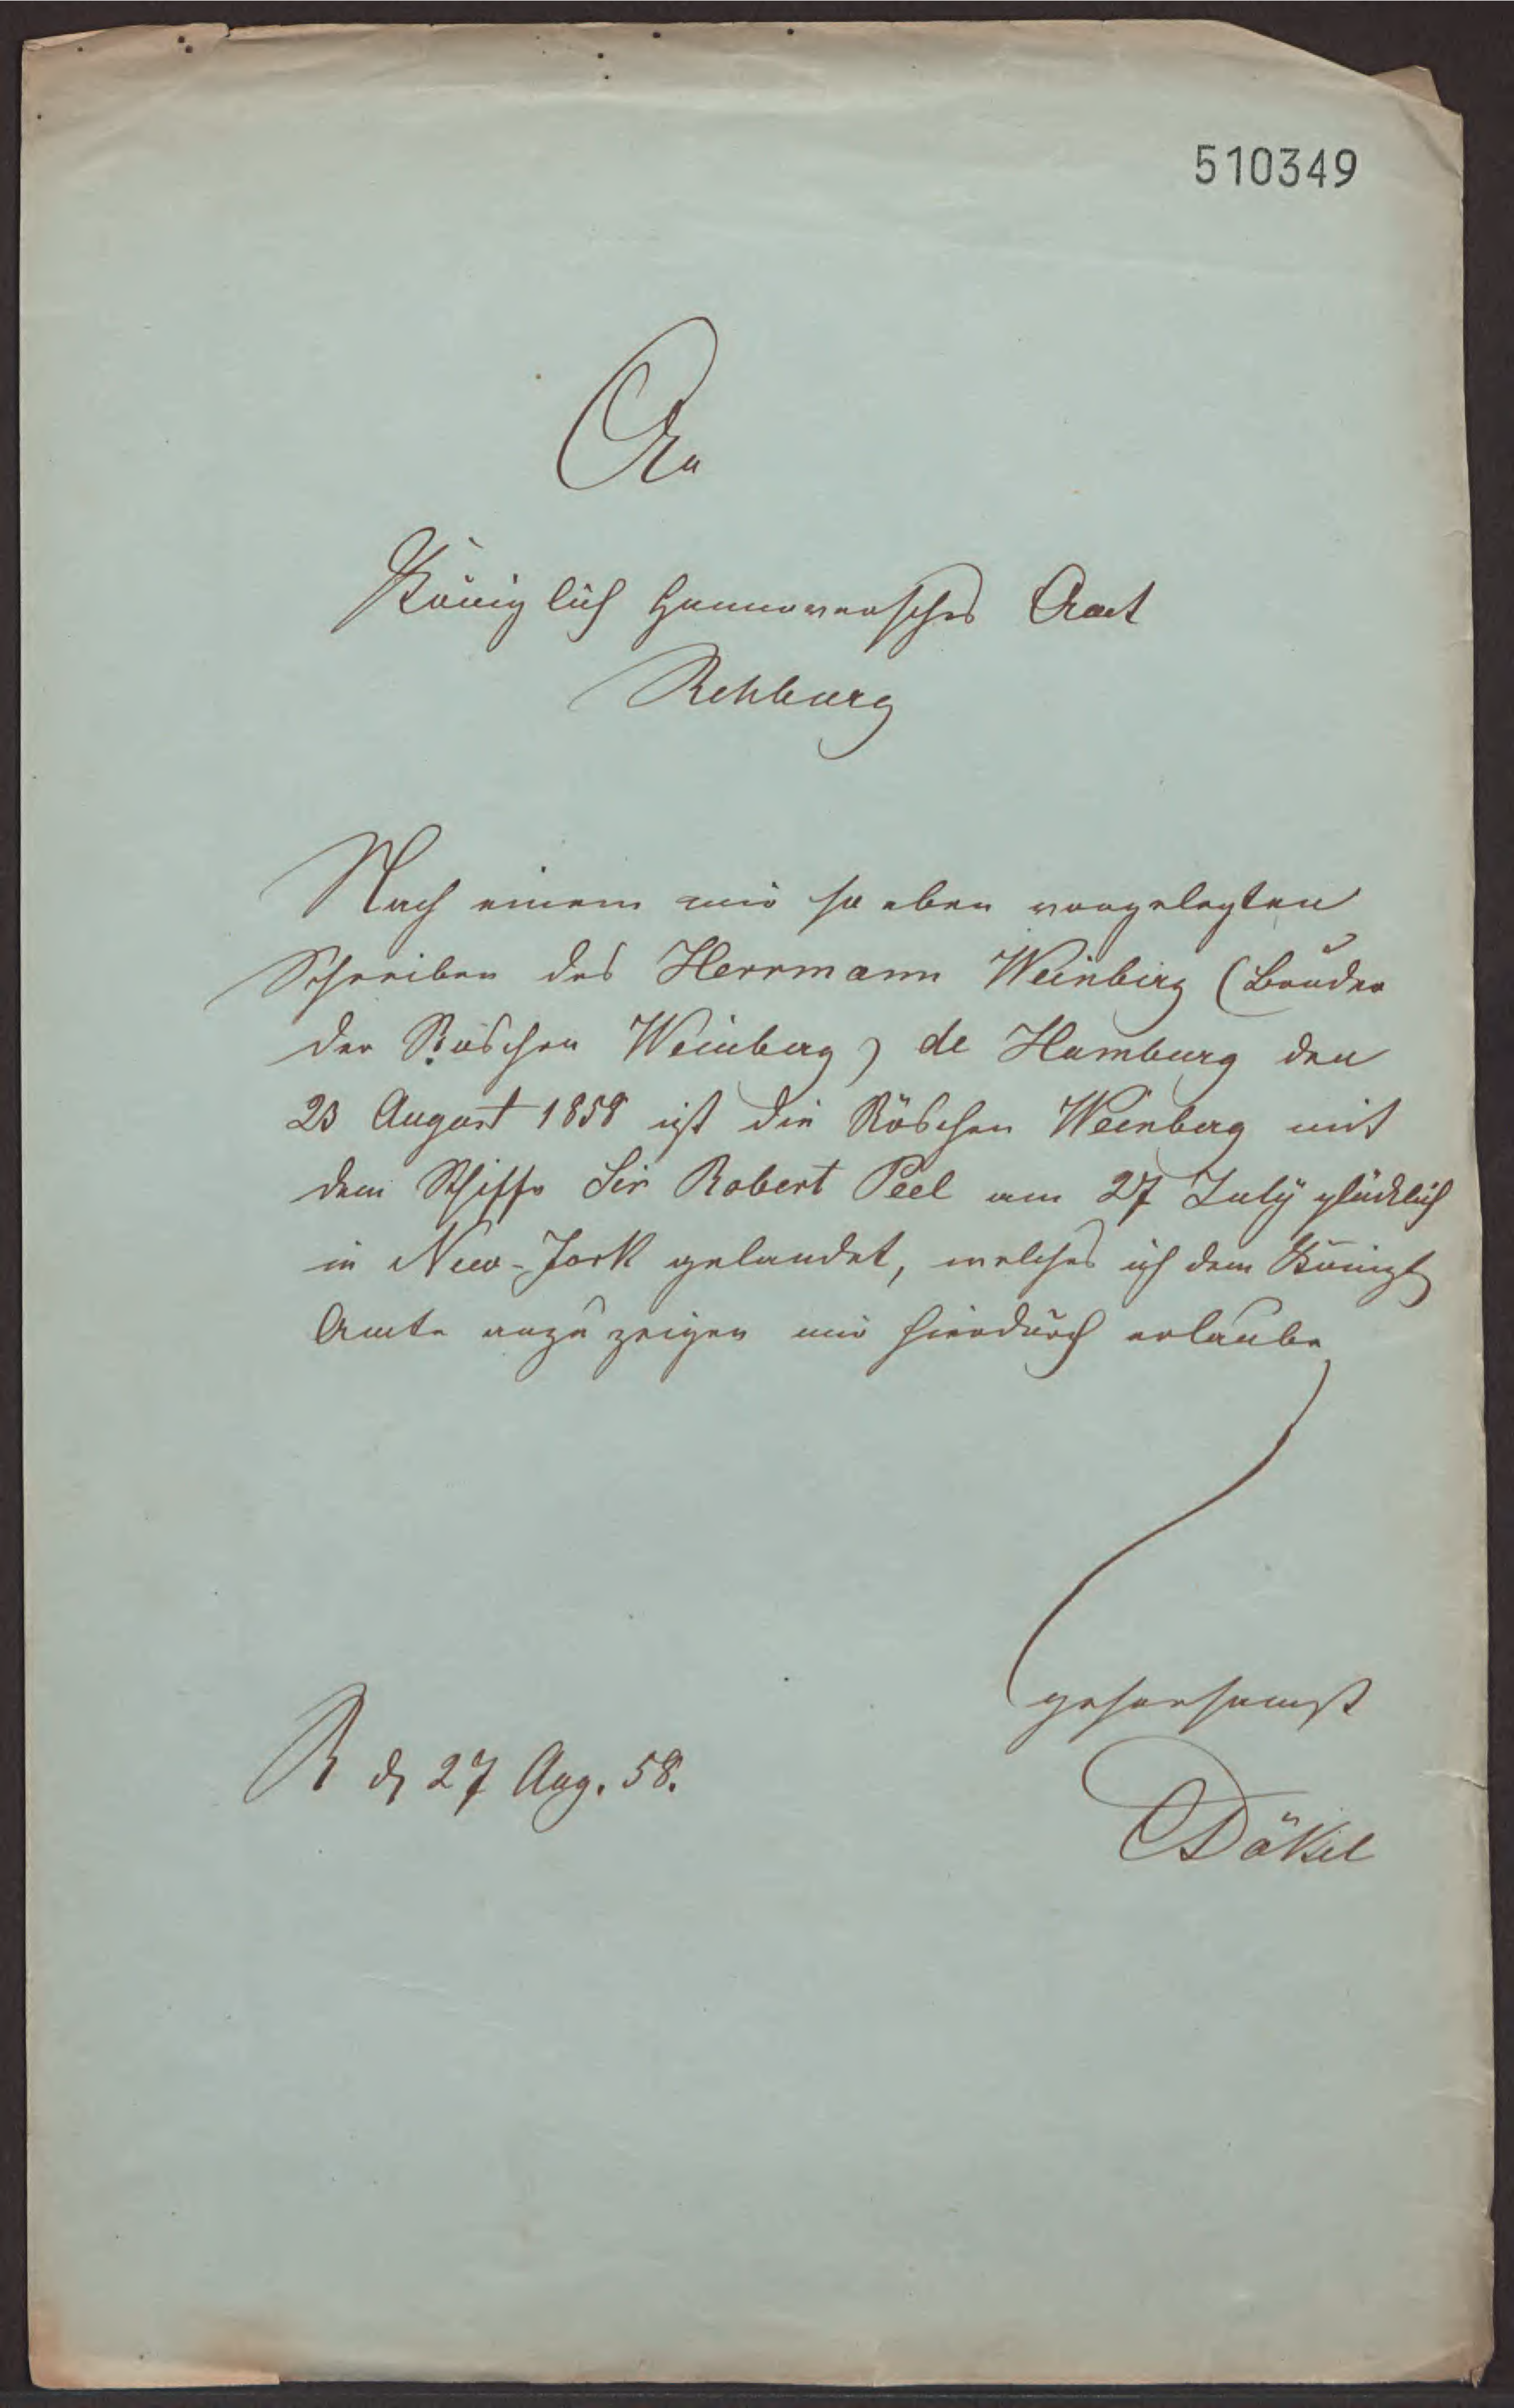 510349
An
Königlich Hannoversches Amt
Rehburg
Nach einem mir so eben vorgelegten
Schreiben des Herrmann Weinberg (Bruder
der Röschen Weinberg) de Hamburg den
23 August 1858 ist die Röschen Weinberg mit
dem Schiffe Sir Robert Peel am 27 July glücklich
in New-York gelandet, welches ich dem Königl
Amte anzuzeigen mir hierdurch erlaube
gehorsamst
R d 27 Aug. 58.
Däkel